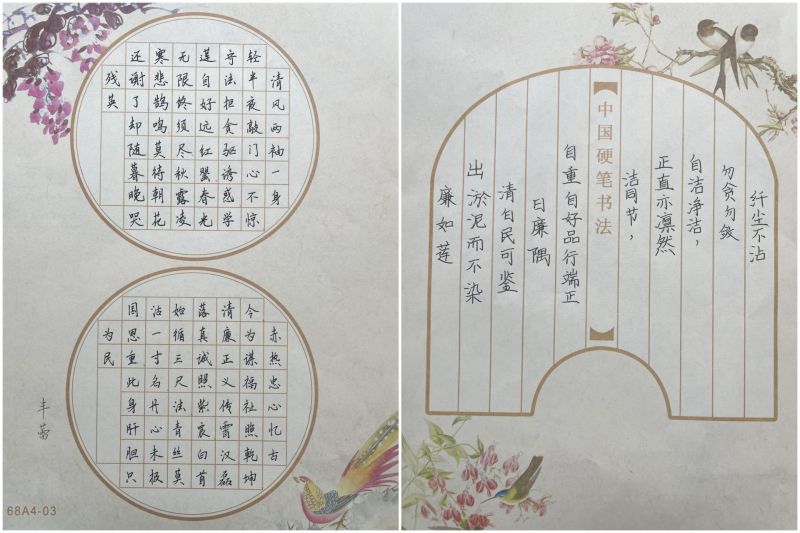 清风两袖一身
轻半夜敲门心不惊
守法拒贪驱诱惑学
莲自好远红罂春光
无限终须尽秋露凌
寒悲鹄鸣莫待朝花
还谢了却随暮晚哭
残英
赤热忠心忆古
今为谋福祉照乾坤
清廉正义传霄汉磊
落真诚照紫宸白首
始循三尺法青丝莫
沾一寸名丹心未报
国思重此身肝胆只
为民
丰蕾
68A4-03
纤尘不沾
勿贪勿敛
自洁净洁，
正直亦凛然
洁同节，
中国硬笔书法
自重自好品行端正
曰廉隅
清白民可鉴
出淤泥而不染
廉如莲